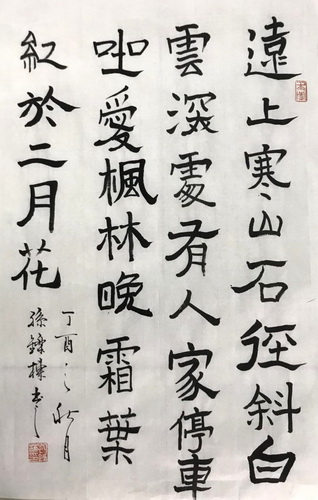 遠上寒山石徑斜白
雲深處有人家停車
坐愛楓林晚霜葉
紅於二月花
丁酉之秋月
孫棟书